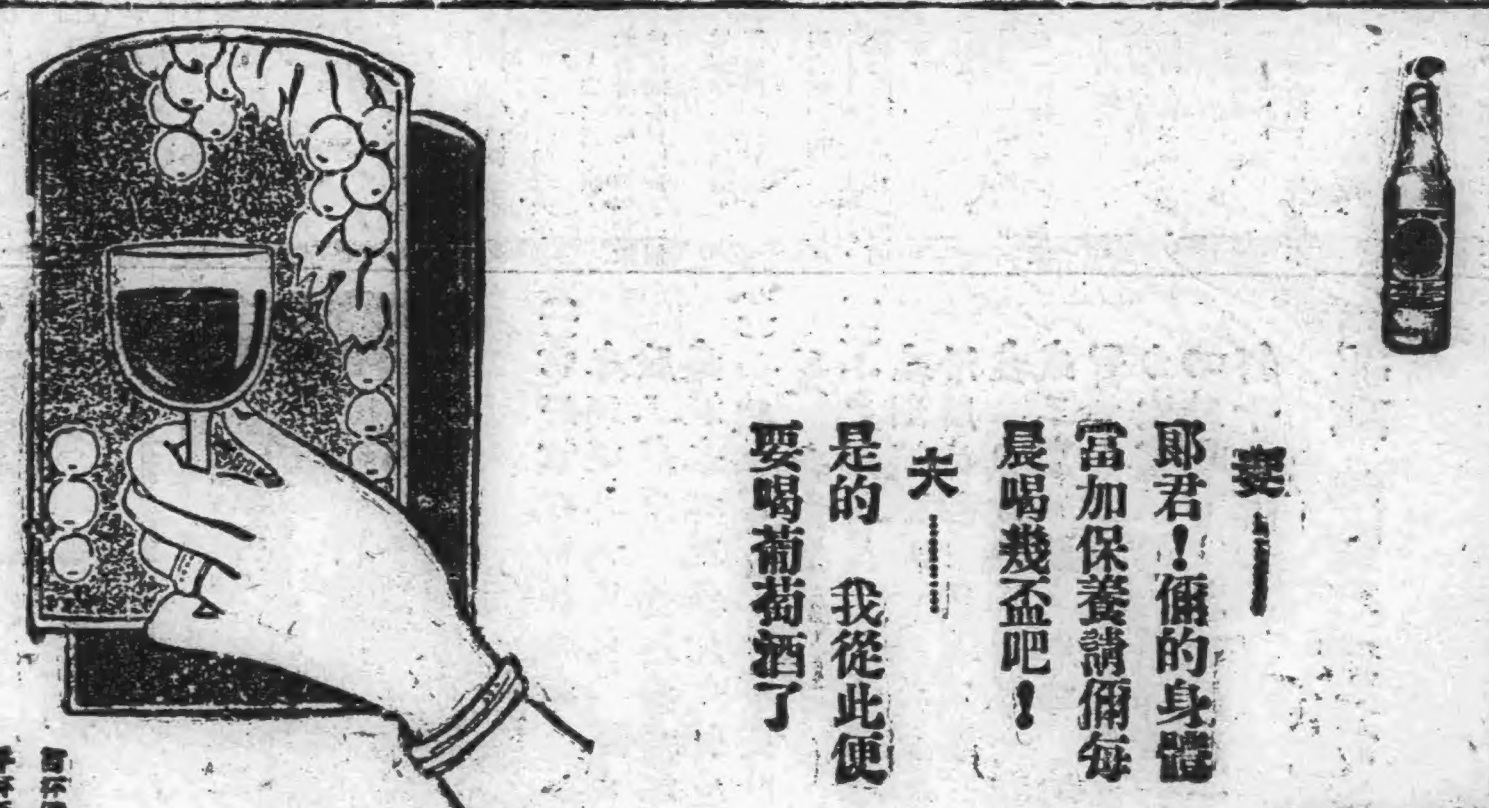 妻
郎君！儞的身體
當加保養請儞每
晨喝幾盃吧！
夫
是的　我從此便
要喝葡萄酒了